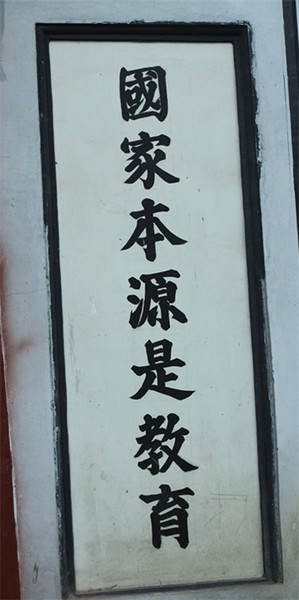 國家本源是教育